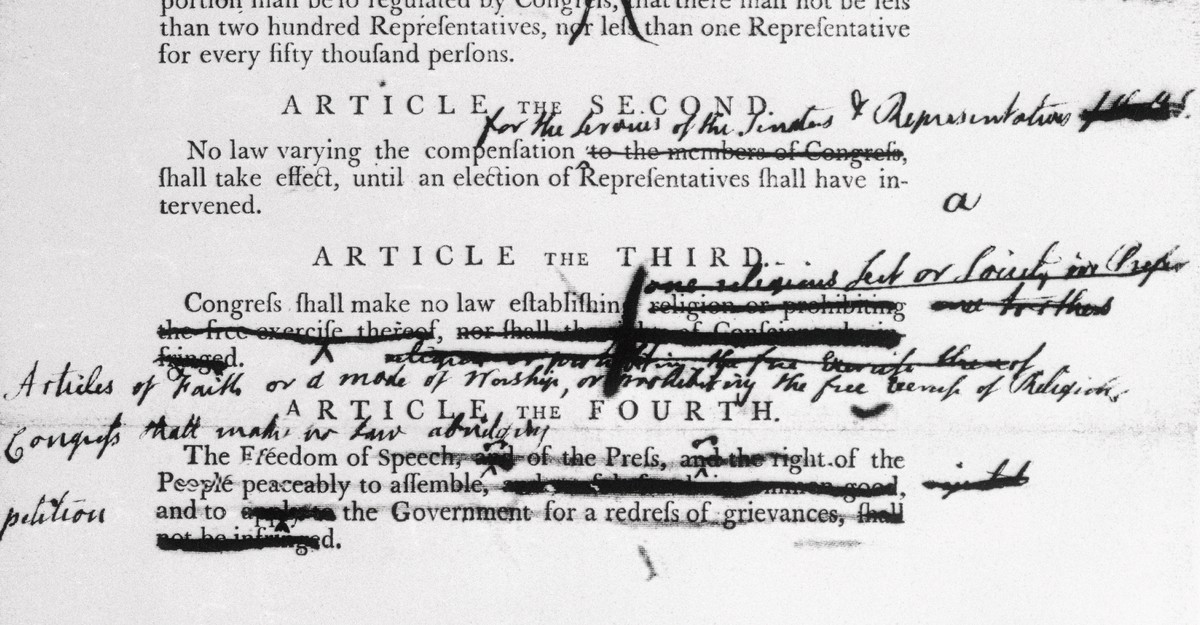 portion shall be so regulated by Congreſs, that there shall not be leſs
than two hundred Repreſentatives, nor leſs than one Repreſentative
for every fifty thouſand perſons.
ARTICLE THE SECOND.
for the services of the Senators & Representatives
No law varying the compenſation to the members of Congreſs,
ſhall take effect, until an election of Repreſentatives ſhall have in-
tervened.
a
ARTICLE THE THIRD.
one religious Sect or Society in Prefer
Congreſs ſhall make no law eſtabliſhing religion or prohibiting
the free exerciſe thereof, nor ſhall the of Conſcience be in-
fringed.
religion or prohibiting the free Exercise thereof
Articles of Faith or a mode of Worship, or prohibiting the free Exercise of Religion,
ARTICLE THE FOURTH.
Congreſs shall make no Law abridging
The Freedom of Speech, and of the Preſs, and the right of the
People peaceably to aſſemble, common good,
petition
and to apply to the Government for a redreſs of grievances, ſhall
not be infringed.